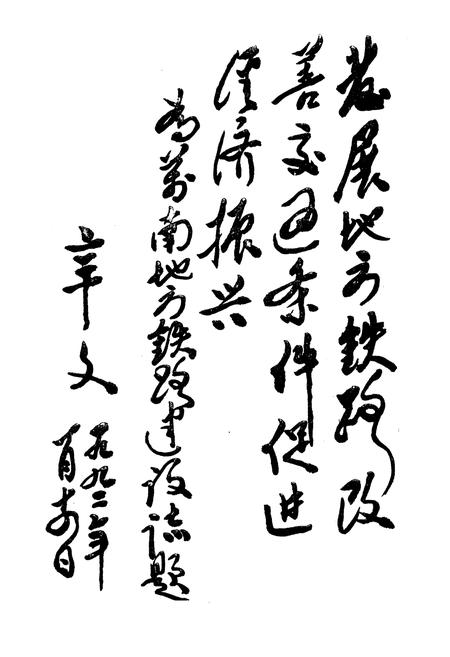 发展地方铁路改
善交通条件促进
经济振兴
为萬南地方铁路建设志题
辛文
一九九二年
月日